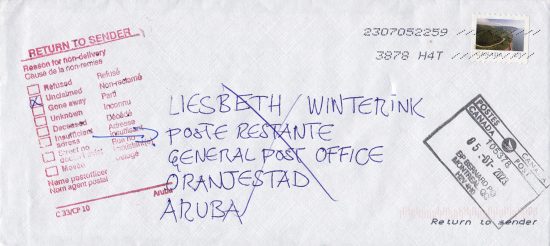 2307052259
3878 H4T
RETURN TO SENDER
Reason for non-delivery
Cause de la non-remise
Refused Refusé
Unclaimed Non-reclamé
Gone away Parti
Unknown Inconnu
Deceased Décédé
Insufficient adress Adresse insuffisante
Street no
Moved
Name postofficer
Nom agent postal
Aruba
C 33/CP 10
LIESBETH WINTERINK
POSTE RESTANTE
GENERAL POST OFFICE
ORANJESTAD
ARUBA
POSTES CANADA
CANADA POST
105376
05 -07- 2023
BP BERNARD PO
MONTREAL QC
Return to sender